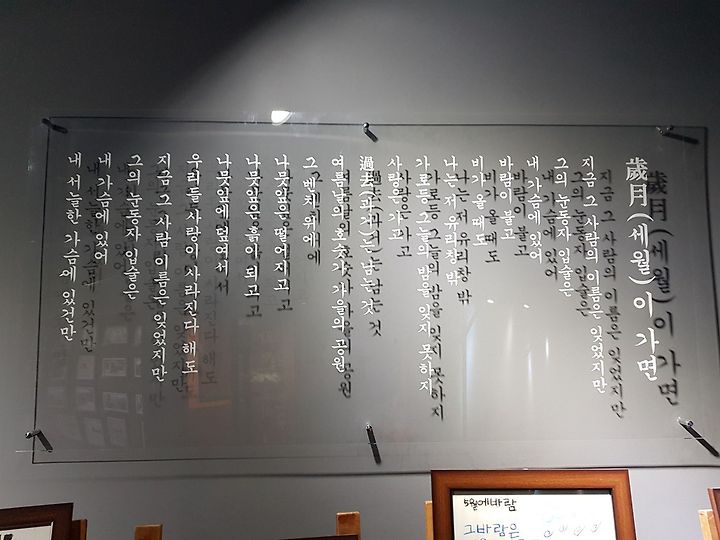 歲月(세월)이 가면
지금 그 사람의 이름은 잊었지만
그의 눈동자 입술은
내 가슴에 있어
바람이 불고
비가 올 때도
나는 저 유리창 밖
가로등 그늘의 밤을 잊지 못하지
사랑은 가고
過去(과거)는 남는 것
여름날의 호숫가 가을의 공원
그 벤치 위에
나뭇잎은 떨어지고
나뭇잎은 흙이 되고
나뭇잎에 덮여서
우리들 사랑이 사라진다 해도
지금 그 사람 이름은 잊었지만
그의 눈동자 입술은
내 가슴에 있어
내 서늘한 가슴에 있건만
5월에 바람
그 바람은